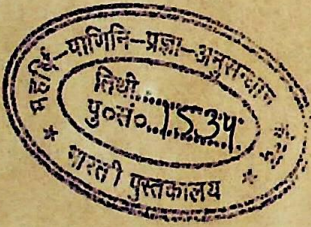 महर्षि-पाणिनि-प्रज्ञा-अनुसन्धान
तिथी..............
पु०सं०...1534
* भारती पुस्तकालय *